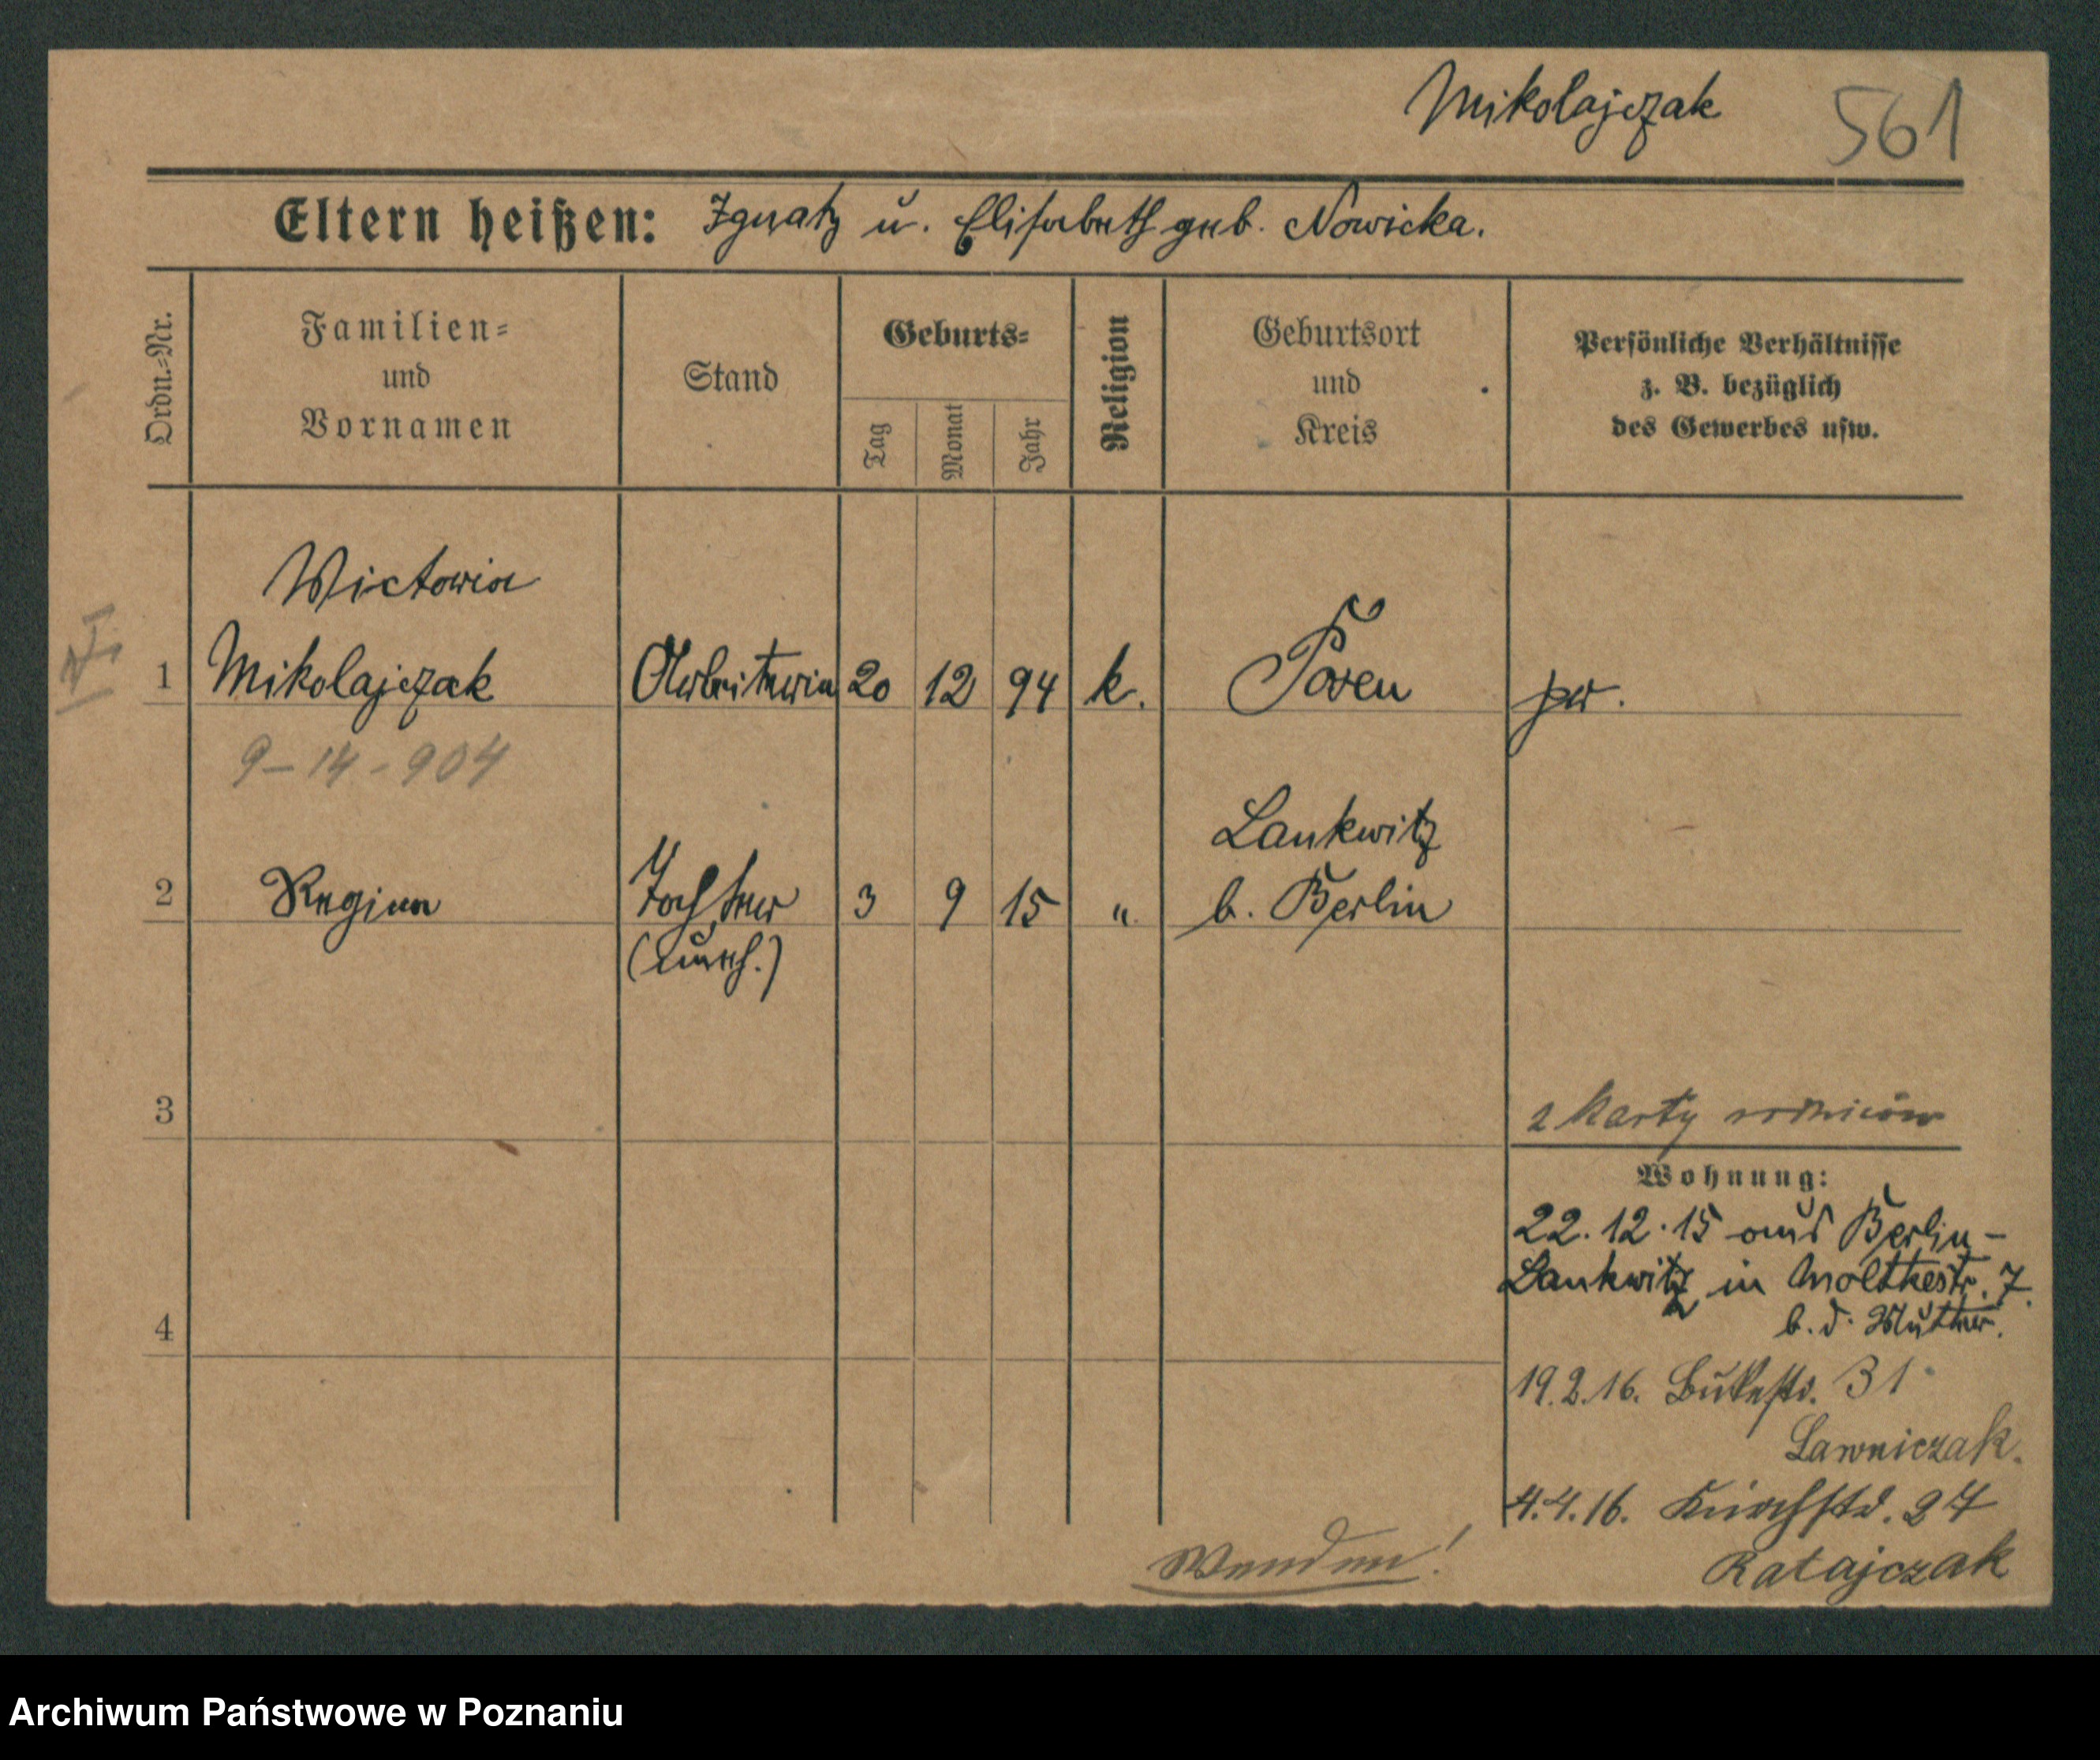 Mikolajczak 561
Eltern heißen: Ignatz u. Elisabeth geb. Nowicka.
Ordn.-Nr.
Familien-
und
Vornamen
Stand
Geburts-
Tag
Monat
Jahr
Religion
Geburtsort
und
Kreis
Persönliche Verhältnisse
z. B. bezüglich
des Gewerbes usw.
Wictoria
1 Mikolajczak Arbeiterin 20 12 94 k. Posen pr.
9-14-904
Lankwitz
2 Regina Tochter 3 9 15 " b. Berlin
(uneh.)
3
2 karty
Wohnung:
22.12.15 aus Berlin-
Lankwitz in Moltkestr. 7.
b. d. Mutter.
4
19.2.16. Bukerstr. 31
Lawniczak.
4.4.16. Kirchstr. 27
Ratajczak
Wenden!
Archiwum Państwowe w Poznaniu